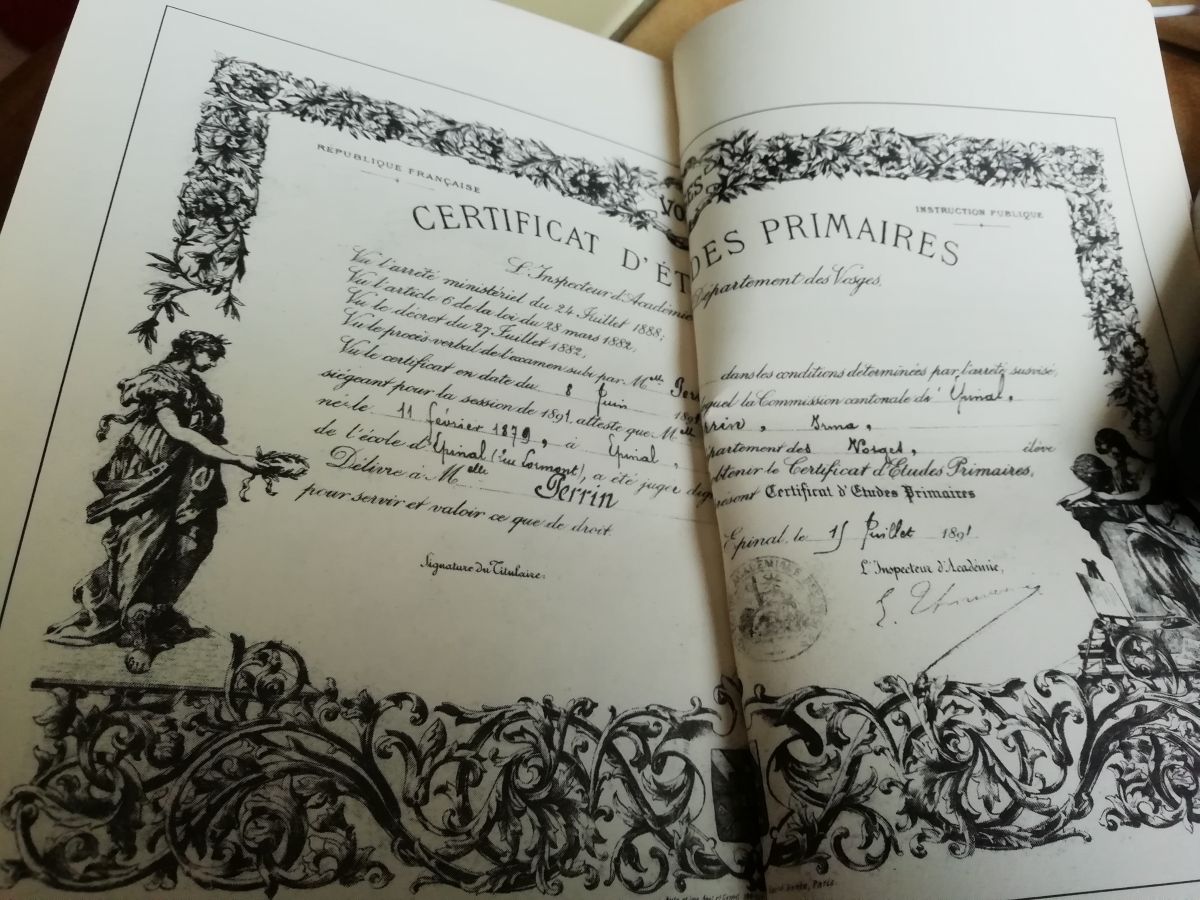 RÉPUBLIQUE FRANÇAISE
INSTRUCTION PUBLIQUE
CERTIFICAT D'ÉT DES PRIMAIRES
L'Inspecteur d'Académie Département des Vosges,
Vu l'arrêté ministériel du 24 Juillet 1888;
Vu l'article 6 de la loi du 28 mars 1882;
Vu le décret du 27 Juillet 1882;
Vu le procès-verbal de l'examen subi par Melle Per dans les conditions déterminées par l'arrêté susvisé,
Vu le certificat en date du 8 Juin 189 quel la Commission cantonale d'Epinal,
siégeant pour la session de 1891, atteste que Melle rrin, Irma,
né le 11 février 1879, à Epinal, partement des Vosges, élève
de l'école d'Epinal (rue Lormont), a été juger dig btenir le Certificat d'Etudes Primaires,
Délivré à Melle Perrin résent Certificat d'Etudes Primaires
pour servir et valoir ce que de droit.
Epinal, le 15 Juillet 1891
Signature du Titulaire:
L'Inspecteur d'Académie,